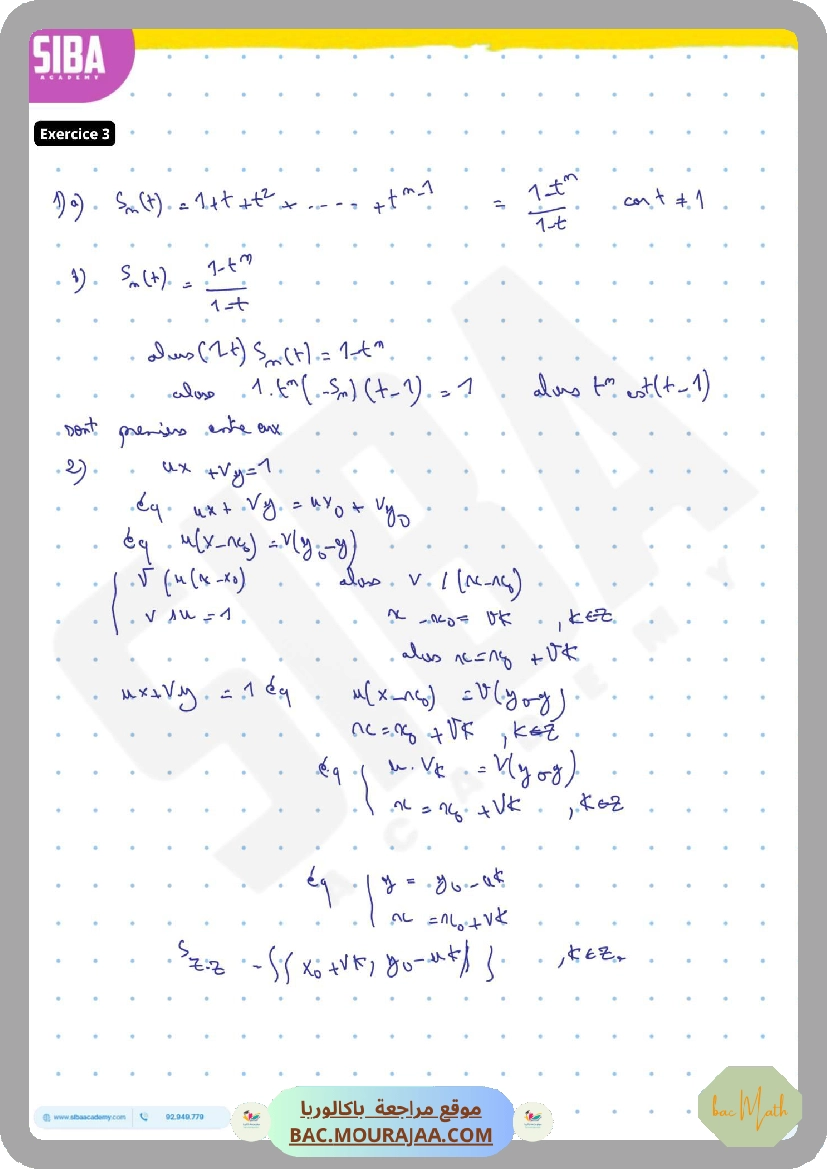 SIBA
ACADEMY
Exercice 3
1) a) Sn(t) = 1+t+t² + ..... + t^n-1 = 1-t^n / 1-t car t ≠ 1
b) Sn(t) = 1-t^n / 1-t
alors (1-t) Sn(t) = 1-t^n
alors 1.t^n (-Sn)(t-1) = 1 alors t^n et (t-1)
sont premiers entre eux
2) ux + vy = 1
éq ux + vy = ux0 + vy0
éq u(x-x0) = v(y0-y)
{ v / u(x-x0) alors v / (x-x0)
v ∧ u = 1 x - x0 = vk , k∈Z
alors x = x0 + vk
ux+vy = 1 éq u(x-x0) = v(y0-y)
x = x0 + vk , k∈Z
éq { u.vk = v(y0-y)
x = x0 + vk , k∈Z
éq { y = y0 - uk
x = x0 + vk
S Z.Z = {( x0 + vk, y0 - uk) } , k∈Z.
SIBA
ACADEMY
www.sibaacademy.com 92.949.779
موقع مراجعة باكالوريا
BAC.MOURAJAA.COM
bac Math